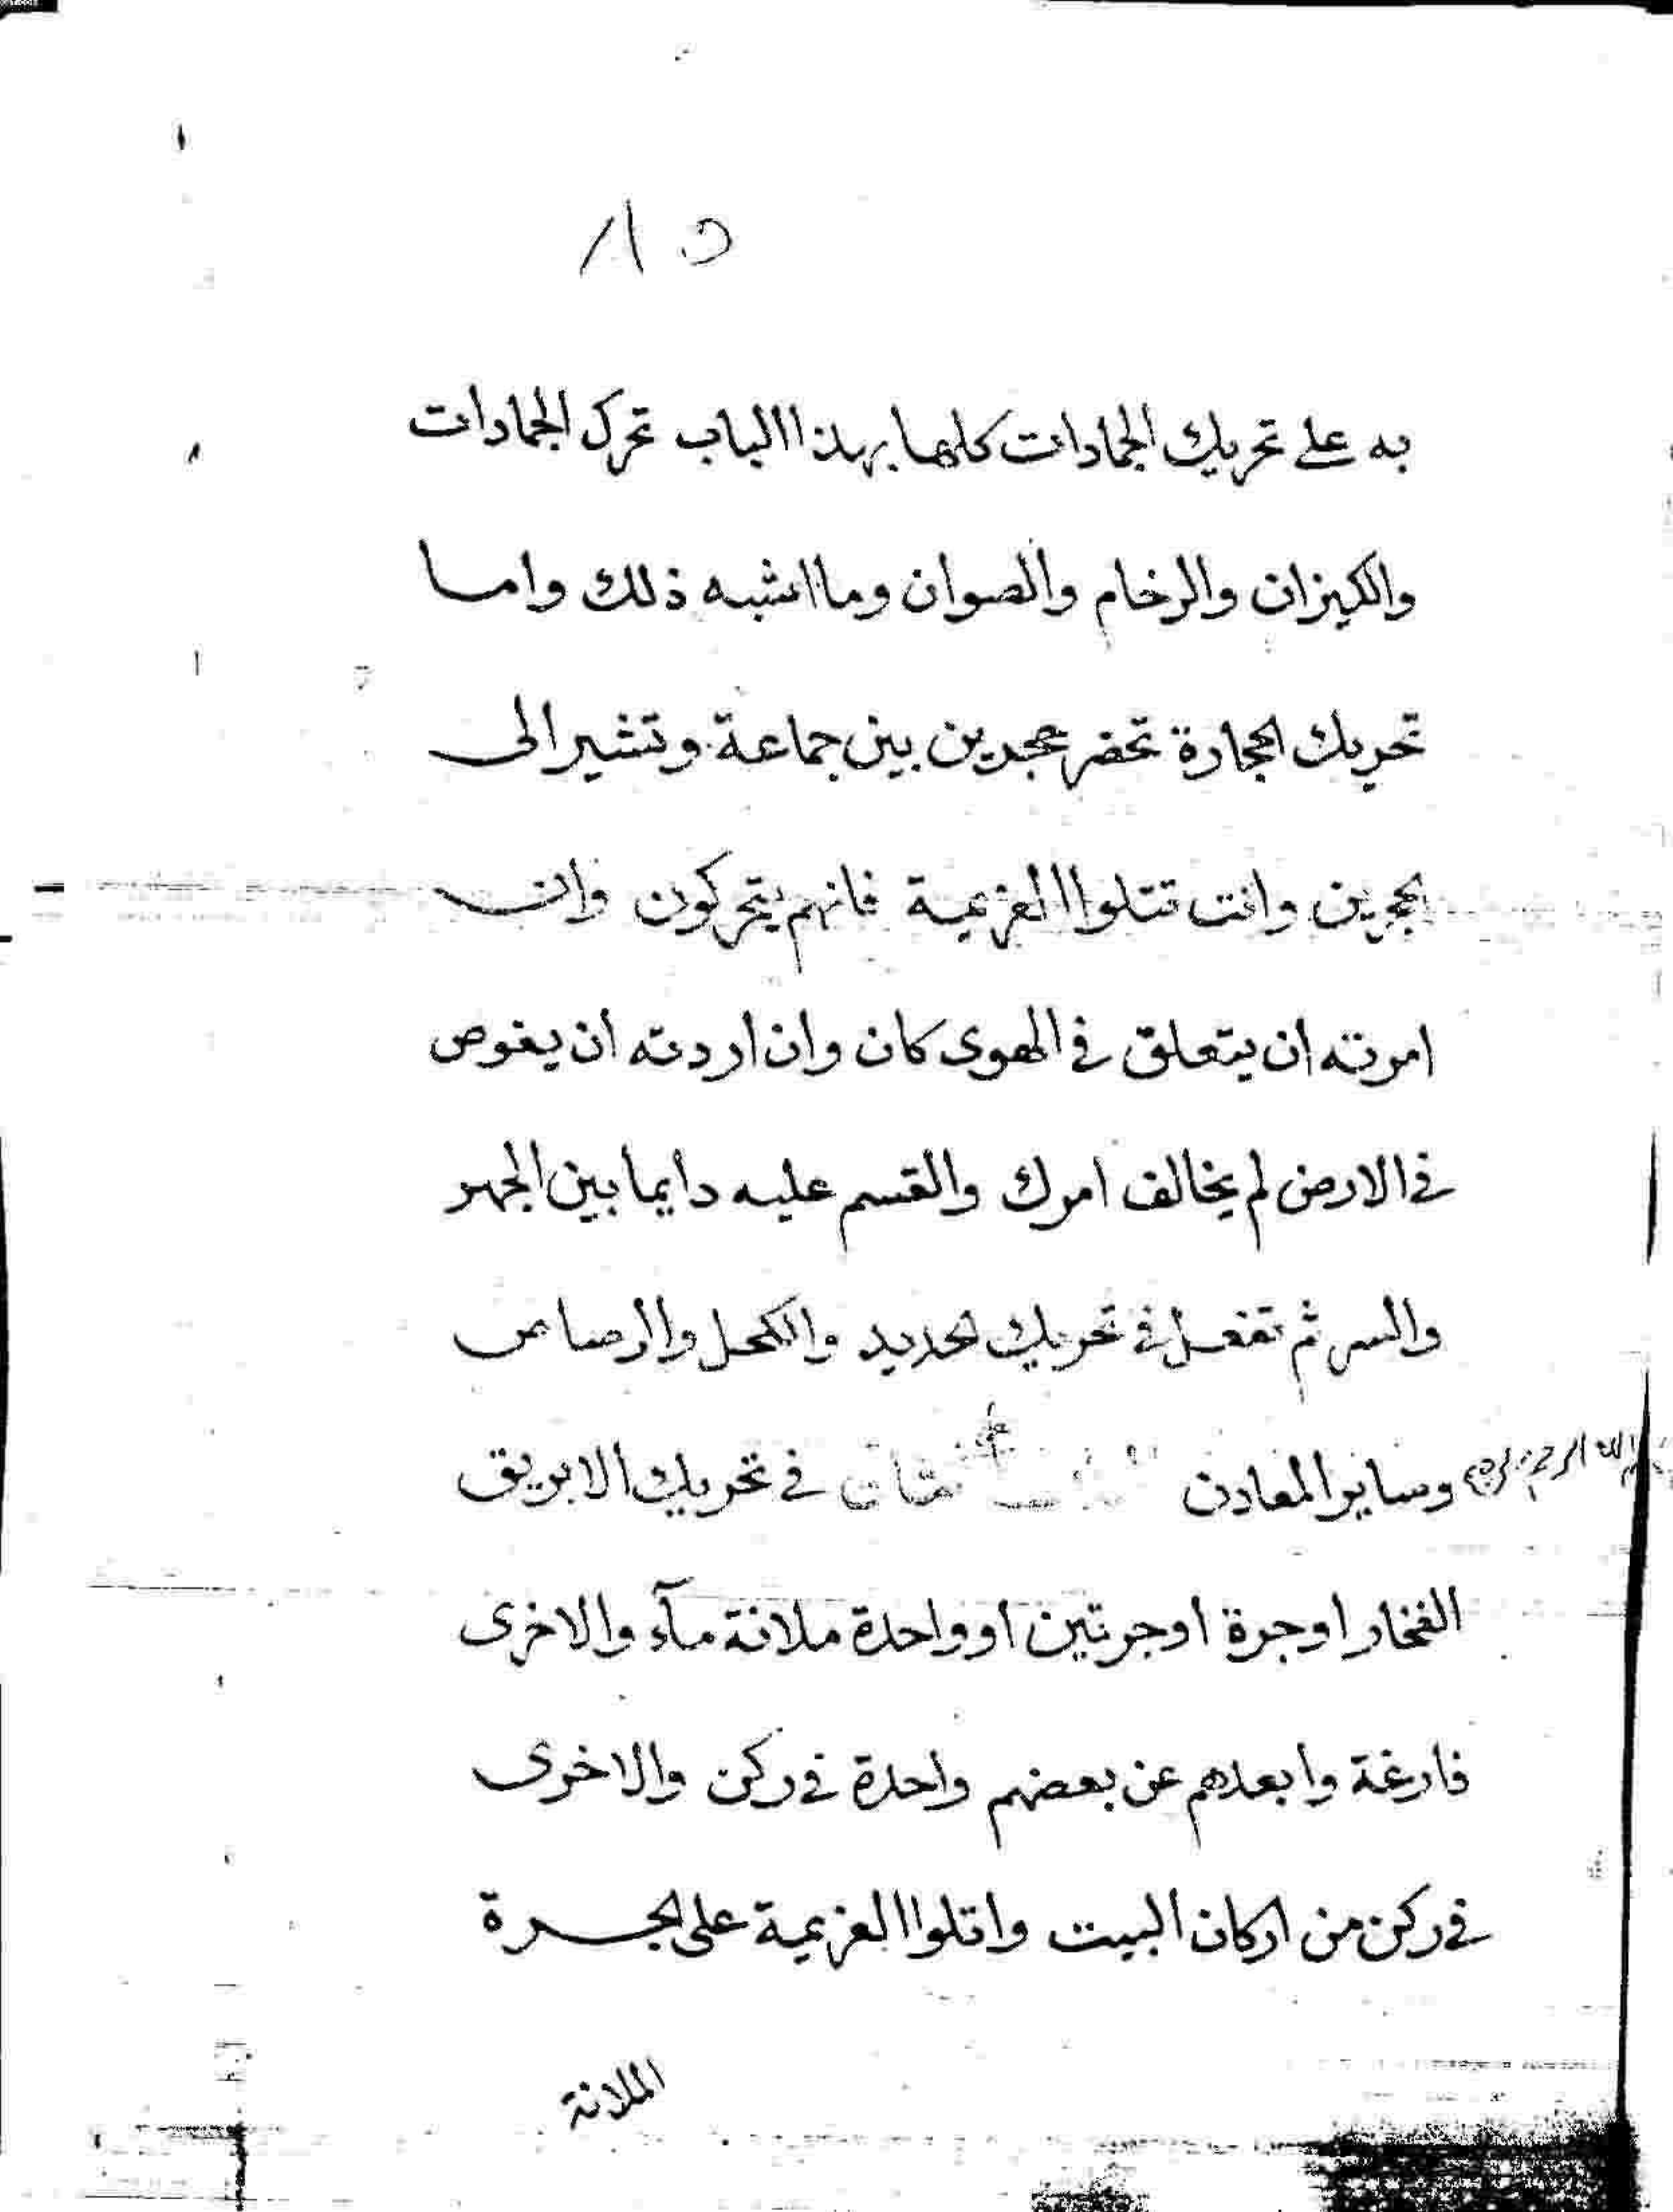 ٨٥
به على تحريك الجمادات كلها بهذا الباب تحرك الجمادات
والكيزان والرخام والصوان وما اشبه ذلك واما
تحريك الحجارة تحضر حجرين بين جماعة وتشير الى
الحجرين وانت تتلوا العزيمة فانهم يتحركون وان
امرته ان يتعلق في الهوى كان وان اردته ان يغوص
في الارض لم يخالف امرك والقسم عليه دايما بين الجهر
والسر ثم تفعل في تحريك الحديد والكحل والرصاص
وساير المعادن في تحريك الابريق
الفخار او جرة او جرتين او واحدة ملانة مآء والاخرى
فارغة وابعدهم عن بعضهم واحدة في ركن والاخرى
في ركن من اركان البيت واتلوا العزيمة على الجرة
الملانة